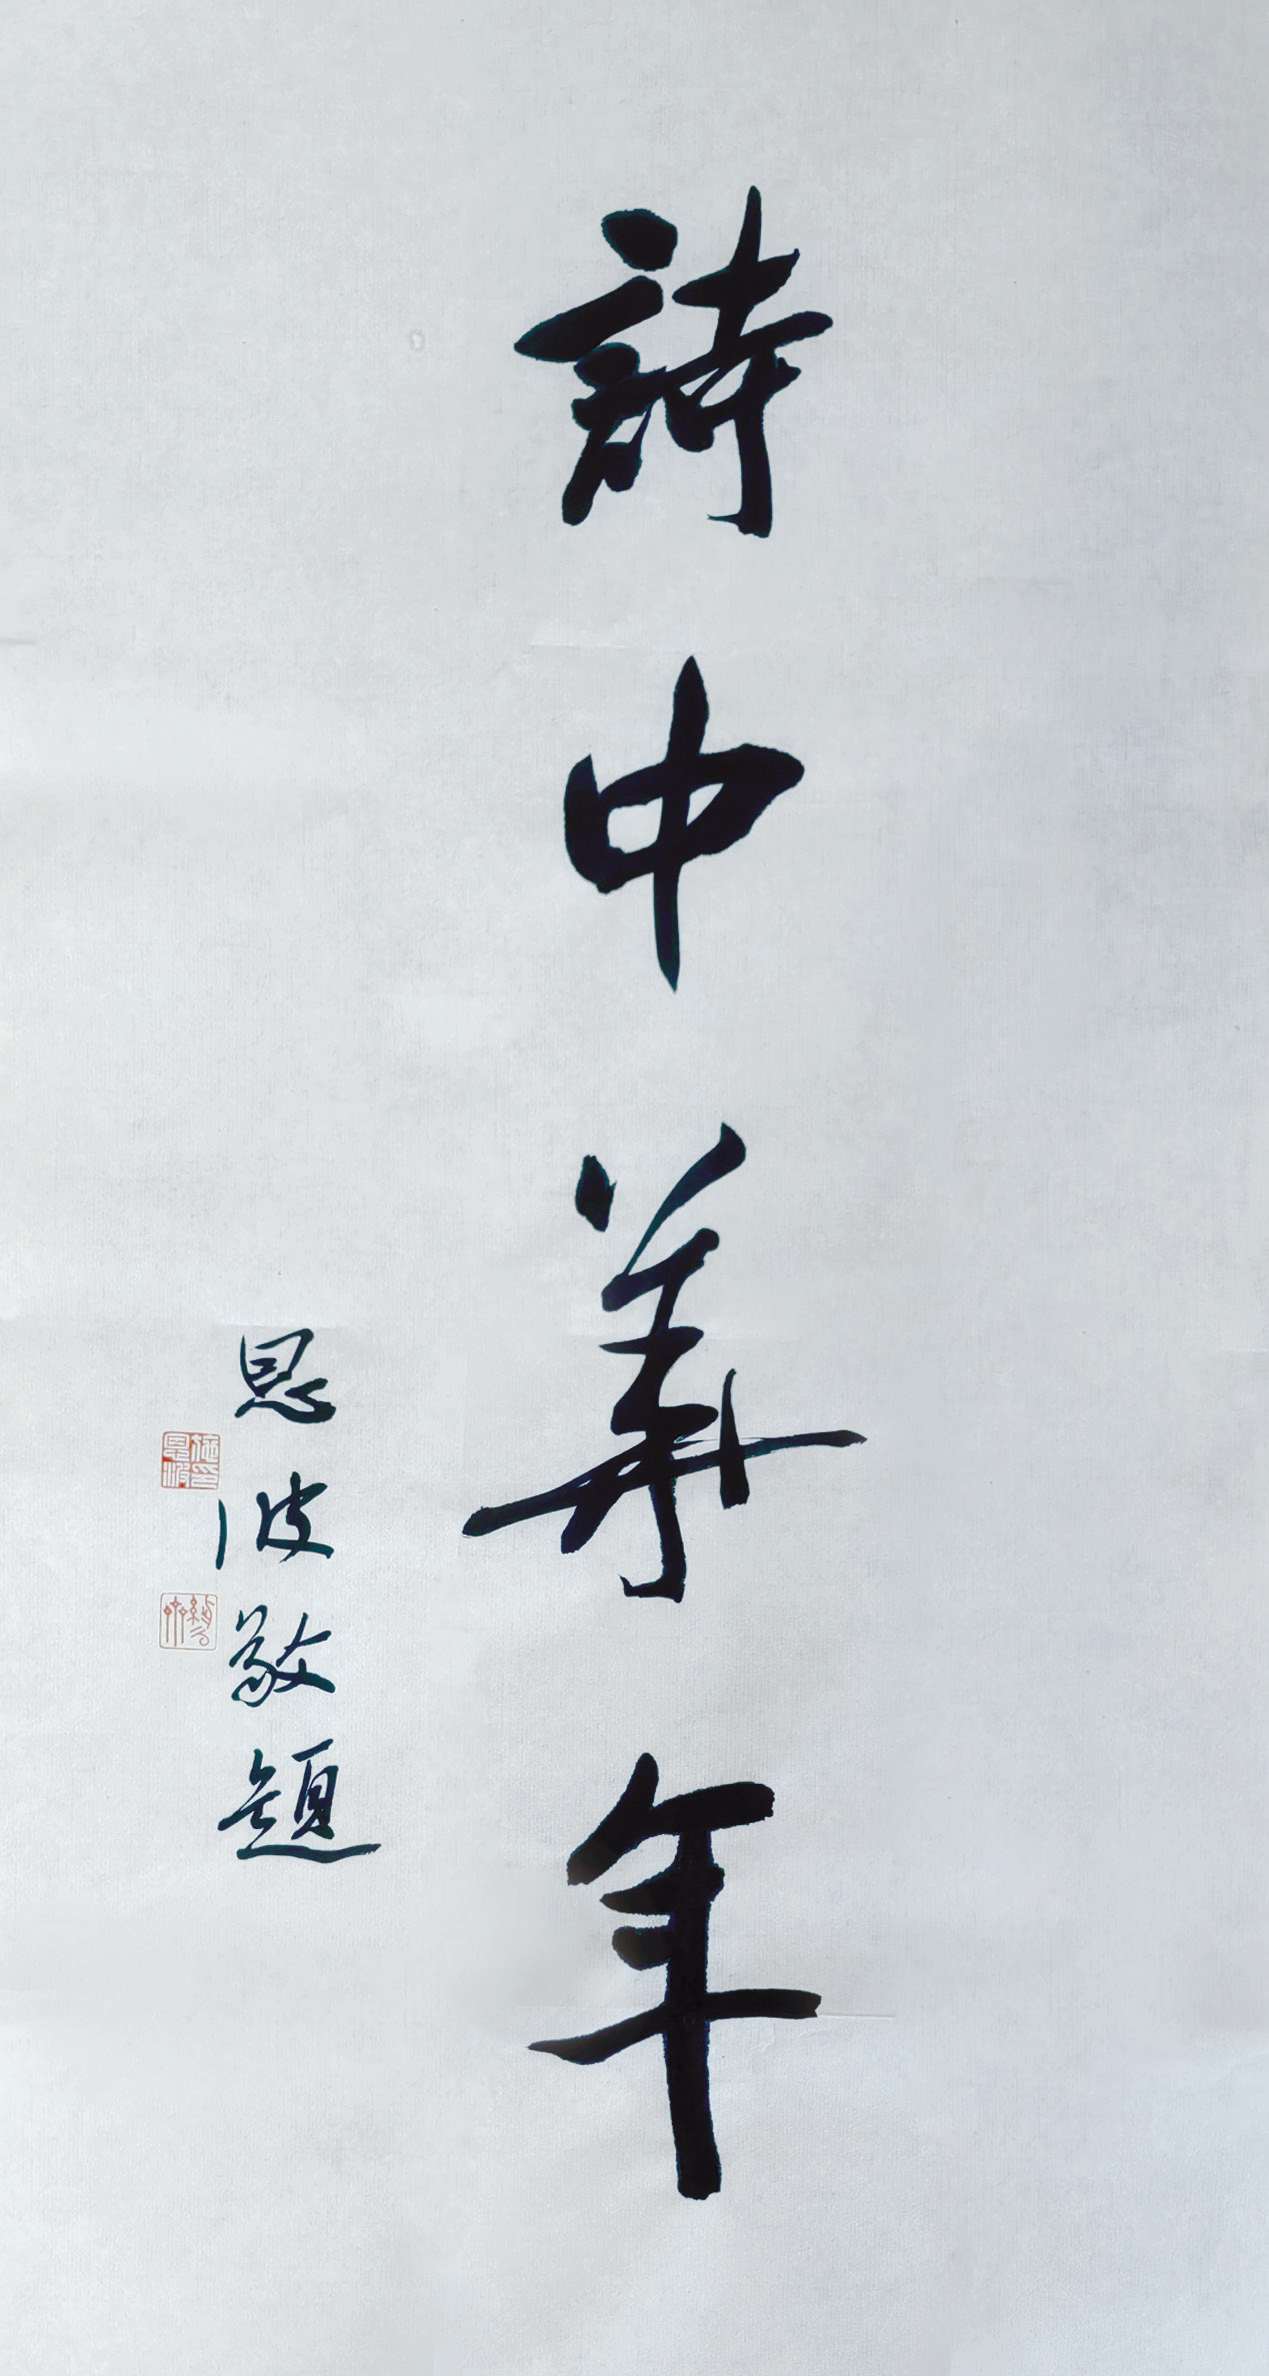 詩中華年
恩波敬題